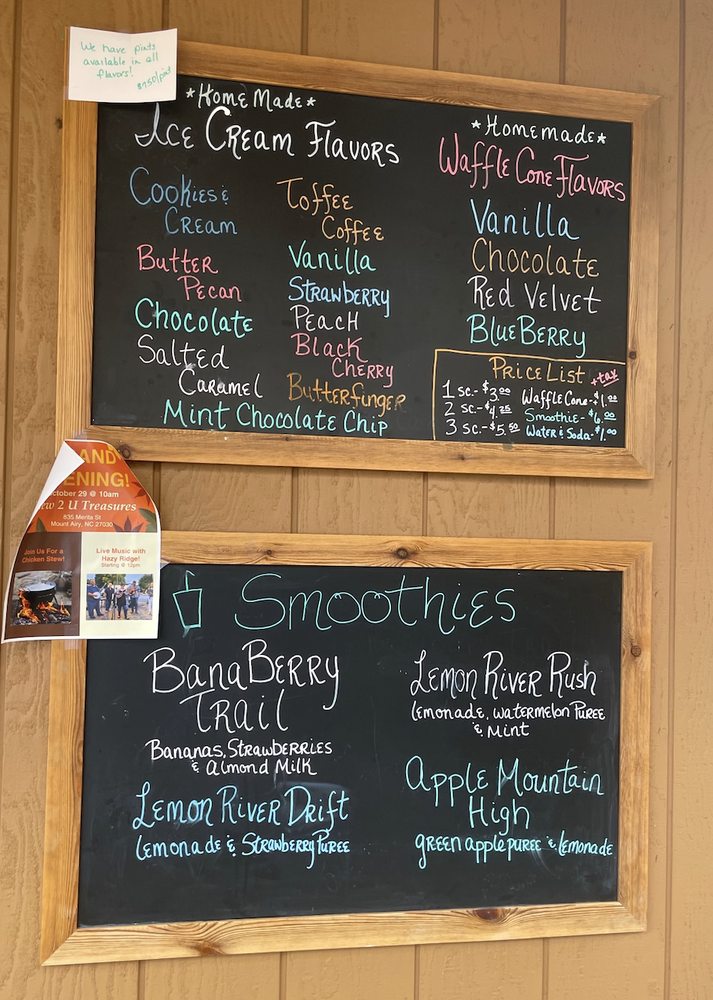 We have pints
available in all
flavors!
*Home Made*
Ice Cream Flavors
Cookies &
Cream
Butter
Pecan
Chocolate
Salted
Caramel
Toffee
Coffee
Vanilla
Strawberry
Peach
Black
Cherry
Butterfinger
Mint Chocolate Chip
*Homemade*
Waffle Cone Flavors
Vanilla
Chocolate
Red Velvet
BlueBerry
Price List +tax
1 sc.-$3.00
2 sc.-$4.25
3 sc.-$5.50
Waffle Cone-$1.00
Smoothie-$6.00
Water & Soda-$1.00
AND
ENING!
ctober 29 @ 10am
ew 2 U Treasures
Mount Airy, NC 27030
Join Us For a
Chicken Stew!
Live Music with
Hazy Ridge!
Starting @ 12pm
Smoothies
BanaBerry
Trail
Bananas, Strawberries
& Almond Milk
Lemon River Drift
lemonade & Strawberry Puree
Lemon River Rush
lemonade, watermelon Puree
& Mint
Apple Mountain
High
green apple puree & lemonade